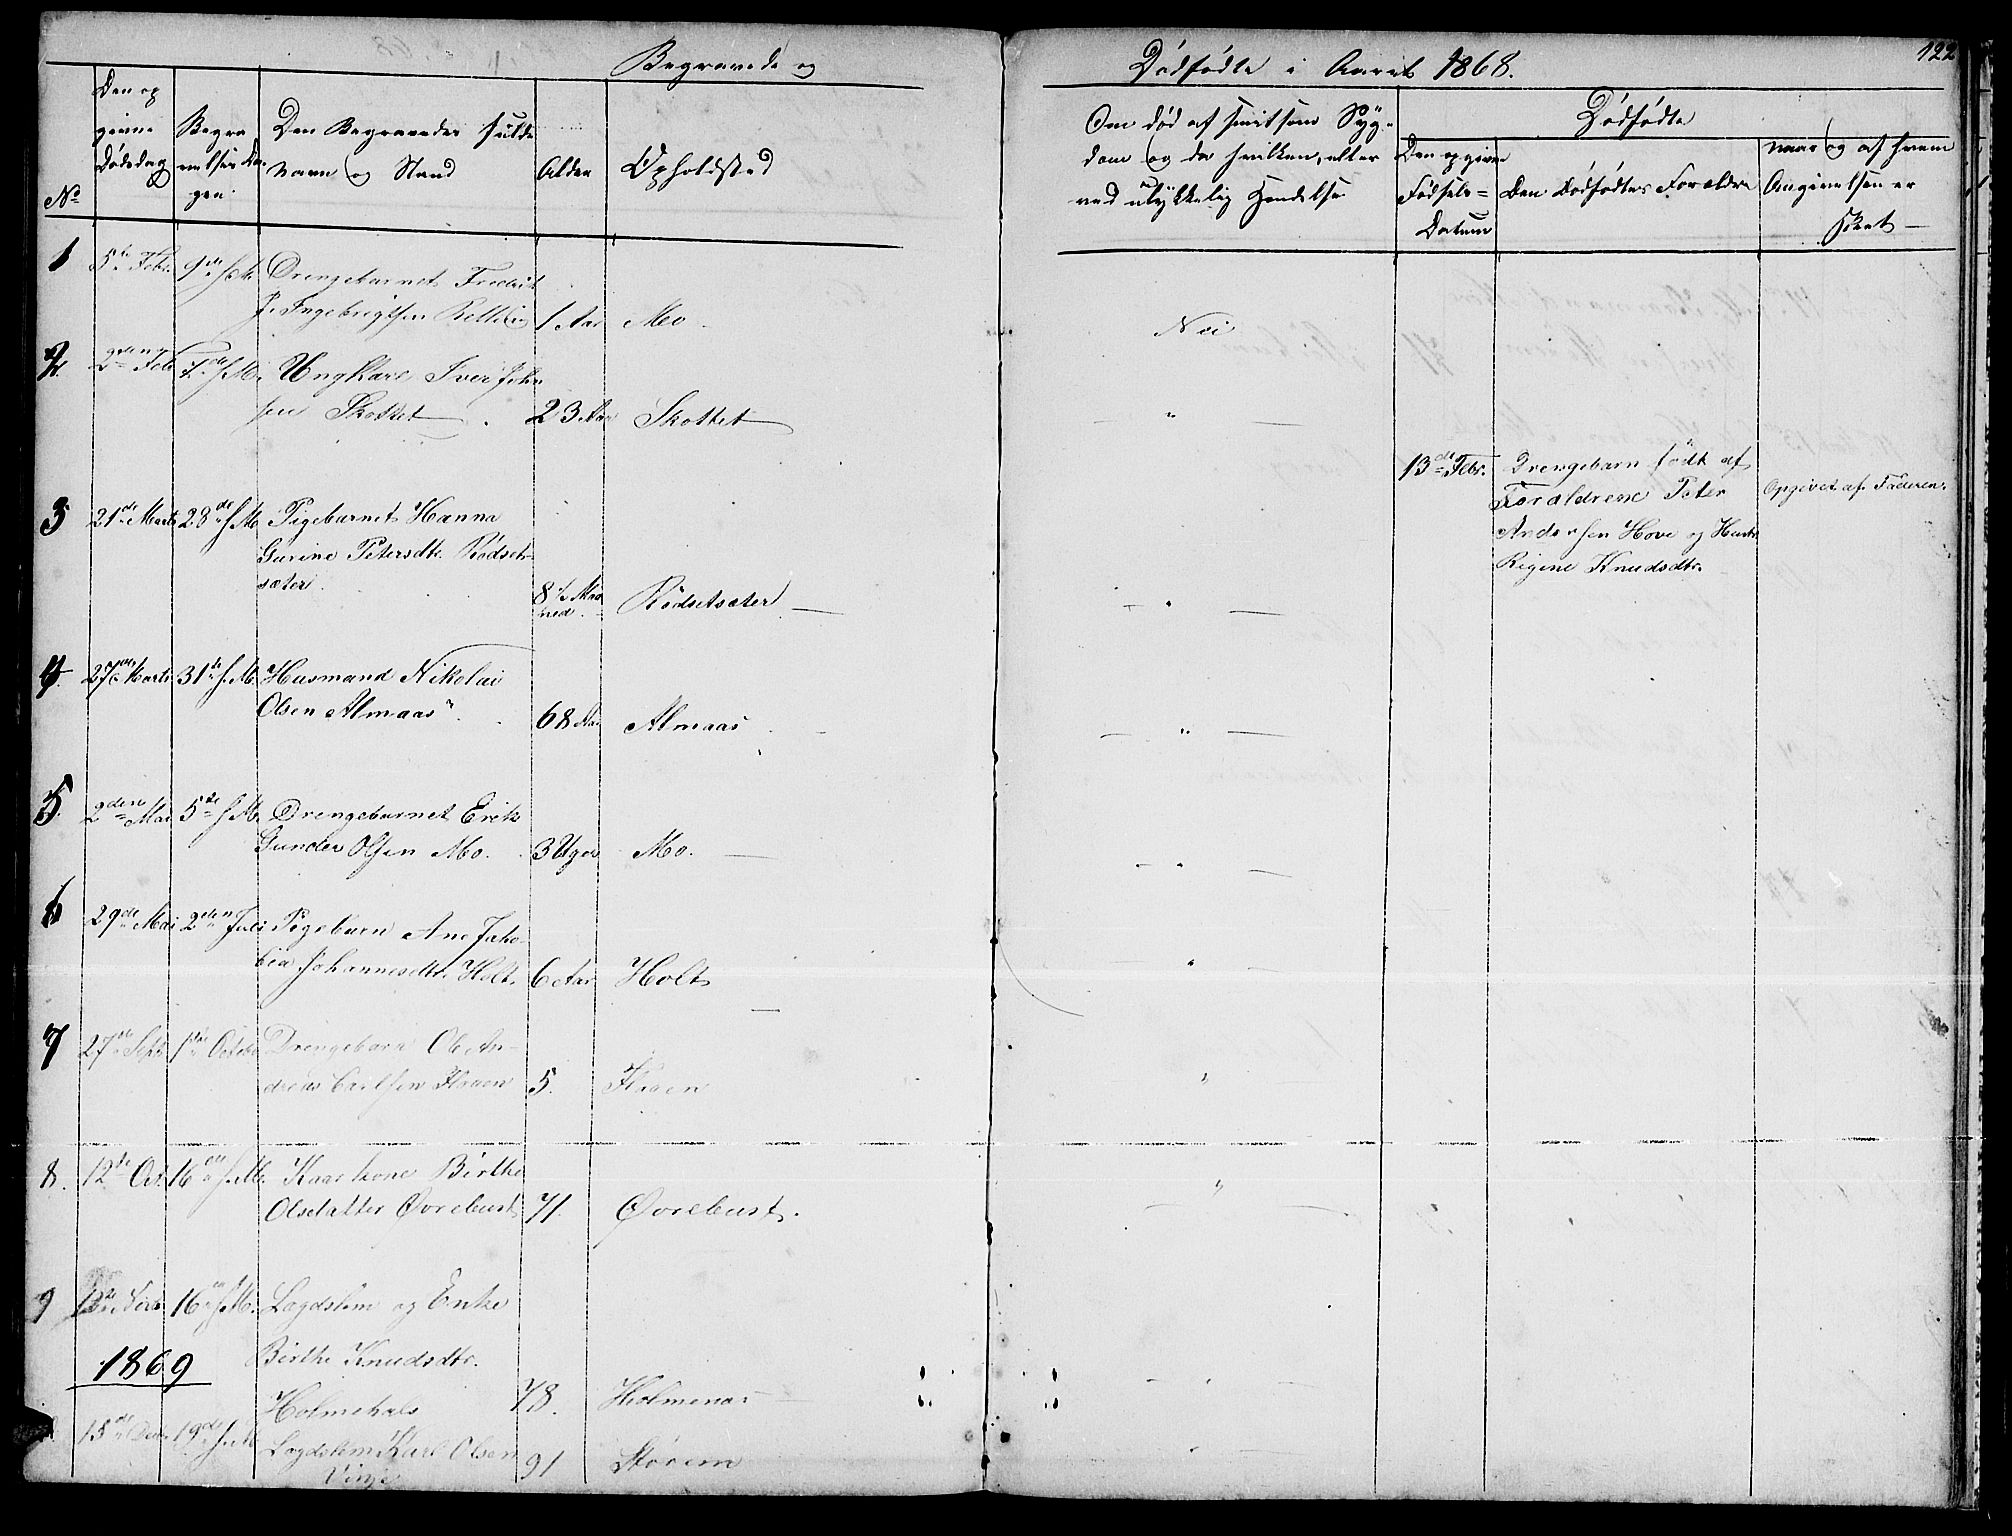 Begravede og
Dödfödte i Aaret 1868.
122
No
Den op
givne
Dödsdag
Begra
velses Da-
gen.
Den Begravedes fulde
Navn og Stand
Alder
Opholdsted
Om död af smitsom Syg-
dom og da hvilken, eller
ved ulykkelig Hændelse
Dödfödte
Den opgivne
Födsels=
Datum
Den Dödfödtes Forældre
naar og af hvem
Angivelsen er
skeet
1 5te Febr. 9de s.M. Drengebarnet Fredrik
Ingebrigtsen 1 Aar Mo.
Nei
2. 2den Feb 7de s.M. Ungkarl Iver John
sen Skottet. 23 Aar Skottet
— " —
13de Febr. Drengebarn födt af
Forældrene Peter
Andersen Hove og Hustr
Regine Knudsdtr.
Opgivet af Faderen.
3 21de Marts 28de s.M. Pigebarnet Hanna
Gurine Petersdtr. Rödset-
sæter. 8 1/2 Maa
ned. Rödsetsæter —
— " —
4. 27de Marts 31te s.M. Husmand Nikolai
Olsen Almaas. 68 Aar Almaas —
— " —
5. 2den Mai 5te s.M. Drengebarnet Erik
Gunder Olsen Mo. 3 Uger Mo. —
— " —
6 29de Mai 2den Juli Pigebarn Ane Jako-
bia Johannesdtr. Holt. 6 Aar Holt —
— " —
7 27de Sept 1ste Octobr Drengebarn Ole An-
dreas Carlsen Flaaen 5. Flaaen
"
8. 12te Oct. 16de s.M. Kaarkone Birthe
Olsdatter Øvrebust 71. Øvrebust.
— " —
9 16de s.M. Lægdslem og Enke
Birthe Knudsdtr.
Holmehals 78. Holmenas —
1869
15de Dec. 19de s.M. Lægdslem Karl Olsen
91 Störem